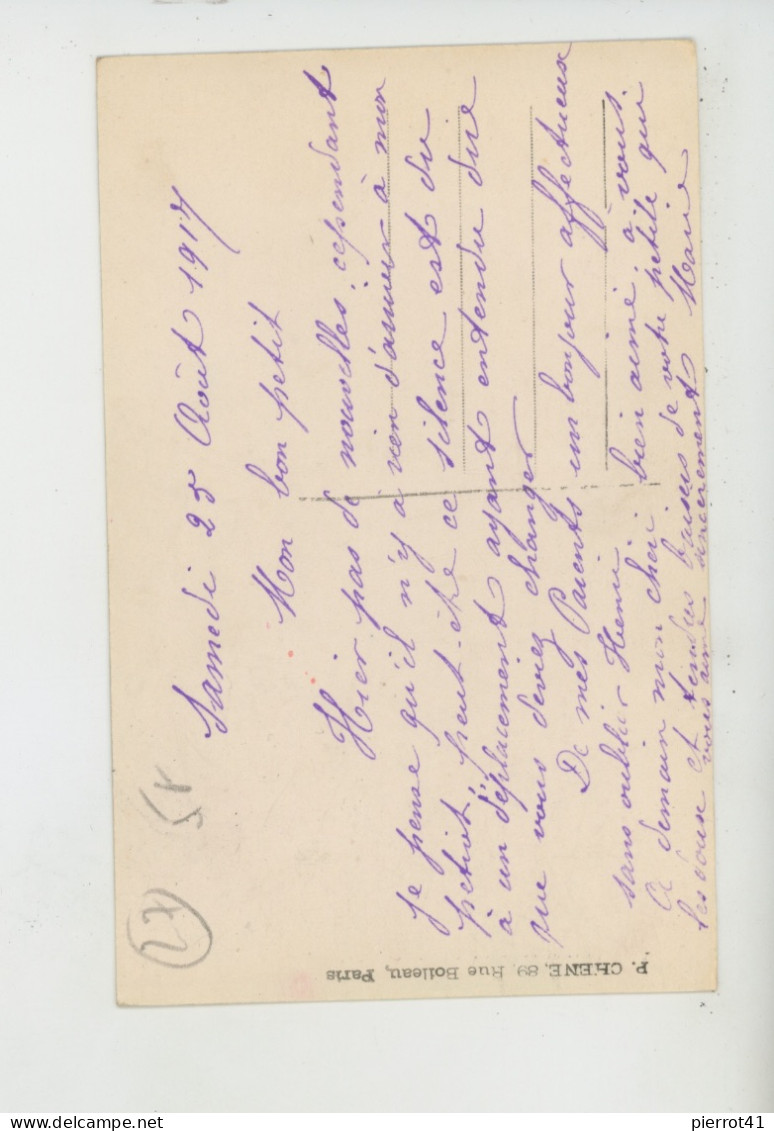 Samedi 25 Août 1917
Mon bon petit
Hier pas de nouvelles : cependant
je pense qu'il n'y a rien d'anvers à mon
petiot, peut-être ce silence est du
à un déplacement ayant entendu dire
que vous deviez changer
De mes Parents un bonjour affectueux
sans oublier Henri
A demain mon cheri bien aimé, à vous
les doux et tendres baisers de votre petite qui
vous aime sincèrement Marie
P. CHENE, 89, Rue Boileau, Paris
pierrot41